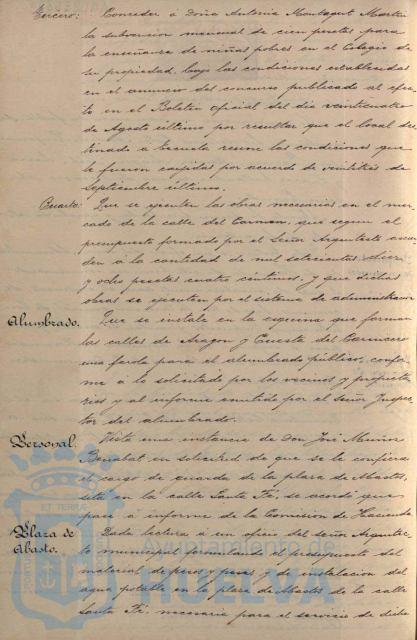 Tercero: Conceder á Doña Antonia Montagut Martin
la subvencion mensual de cien pesetas para
la enseñanza de niñas pobres en el Colegio de
su propiedad, bajo las condiciones establecidas
en el anuncio del concurso publicado al efec-
to en el Boletin oficial del dia veinticuatro
de Agosto último por resultar que el local des-
tinado a Escuela reune las condiciones que
le fueron exigidas por acuerdo de veintitres de
Septiembre último.
Cuarto: Que se ejecuten las obras necesarias en el mer-
cado de la calle del Carmen, que segun el
presupuesto formado por el Señor Arquitecto ascien-
den á la cantidad de mil setecientas diez
y ocho pesetas cuatro céntimos, y que dichas
obras se ejecuten por el sistema de administracion
Alumbrado. Que se instale en la esquina que forman
las calles de Aragon y Cuesta del Carnicero
una farola para el alumbrado público, confor-
me á lo solicitado por los vecinos y propieta-
rios y al informe emitido por el señor Inspec-
tor del alumbrado.
Personal. Vista una instancia de Don José Muñoz
en solicitud de que se le confiera
el cargo de guarda de la plaza de Abastos,
sita en la calle Santa Fé, se acordó que
pase á informe de la Comision de Hacienda
Plaza de Abasto. Dada lectura de un oficio del señor Arquitec-
to municipal formulando el presupuesto del
material de pesos y pesas y de instalacion del
agua potable en la plaza de Abastos de la calle
Santa Fé, necesario para el servicio de dicha
ET TERRÆ
Ayuntamiento de
HUELVA